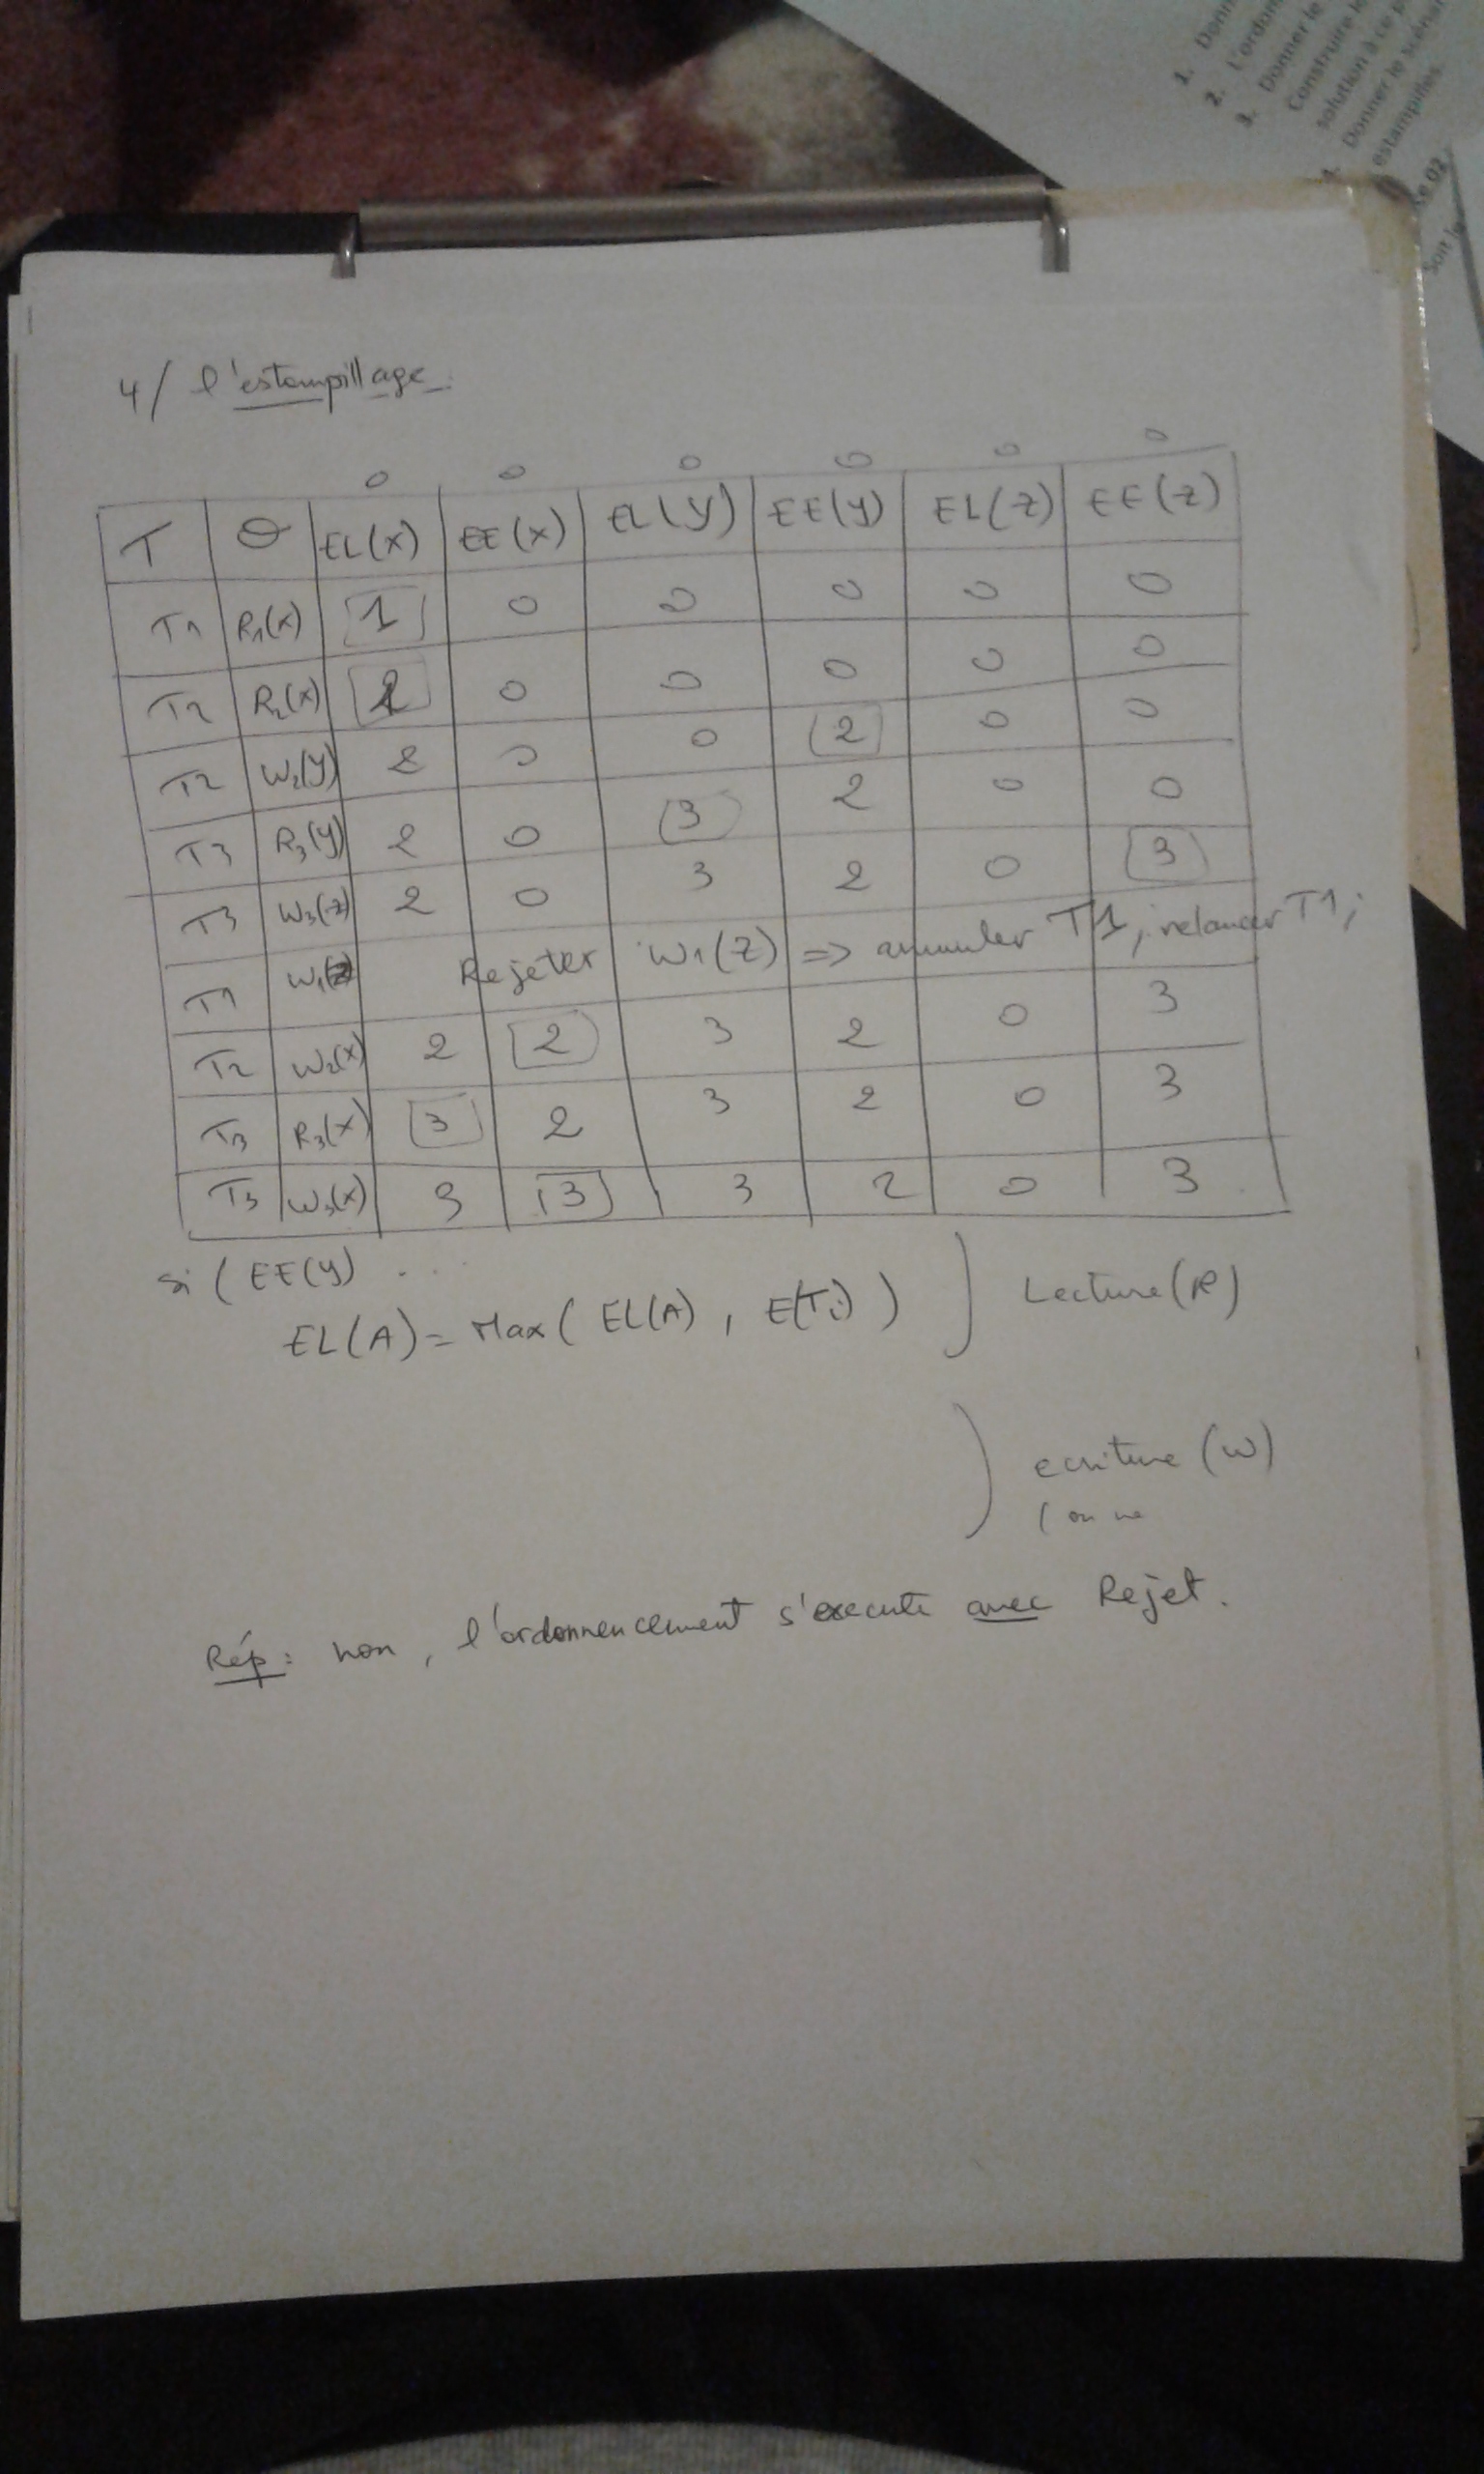 1. Donn
2. L'ordon
3. Donner le
Construire le
solution à ce p
4. Donner le scénar
estampilles
02
Soit le
4/ l'estampillage.
0 0 0 0 0 0
T O EL(x) EE(x) EL(y) EE(y) EL(z) EE(z)
T1 R1(x) 1 0 0 0 0 0
T2 R2(x) 2 0 0 0 0 0
T2 W2(y) 2 0 0 2 0 0
T3 R3(y) 2 0 3 2 0 0
T3 W3(z) 2 0 3 2 0 3
T1 W1(z) Rejeter W1(z) => annuler T1, relancer T1;
T2 W2(x) 2 2 3 2 0 3
T3 R3(x) 3 2 3 2 0 3
T3 W3(x) 3 3 3 2 0 3
si (EE(y) ...
EL(A) = Max ( EL(A) , E(Ti) ) Lecture (R)
ecriture (W)
( on ne
Rép : non , l'ordonnencement s'execute avec Rejet.